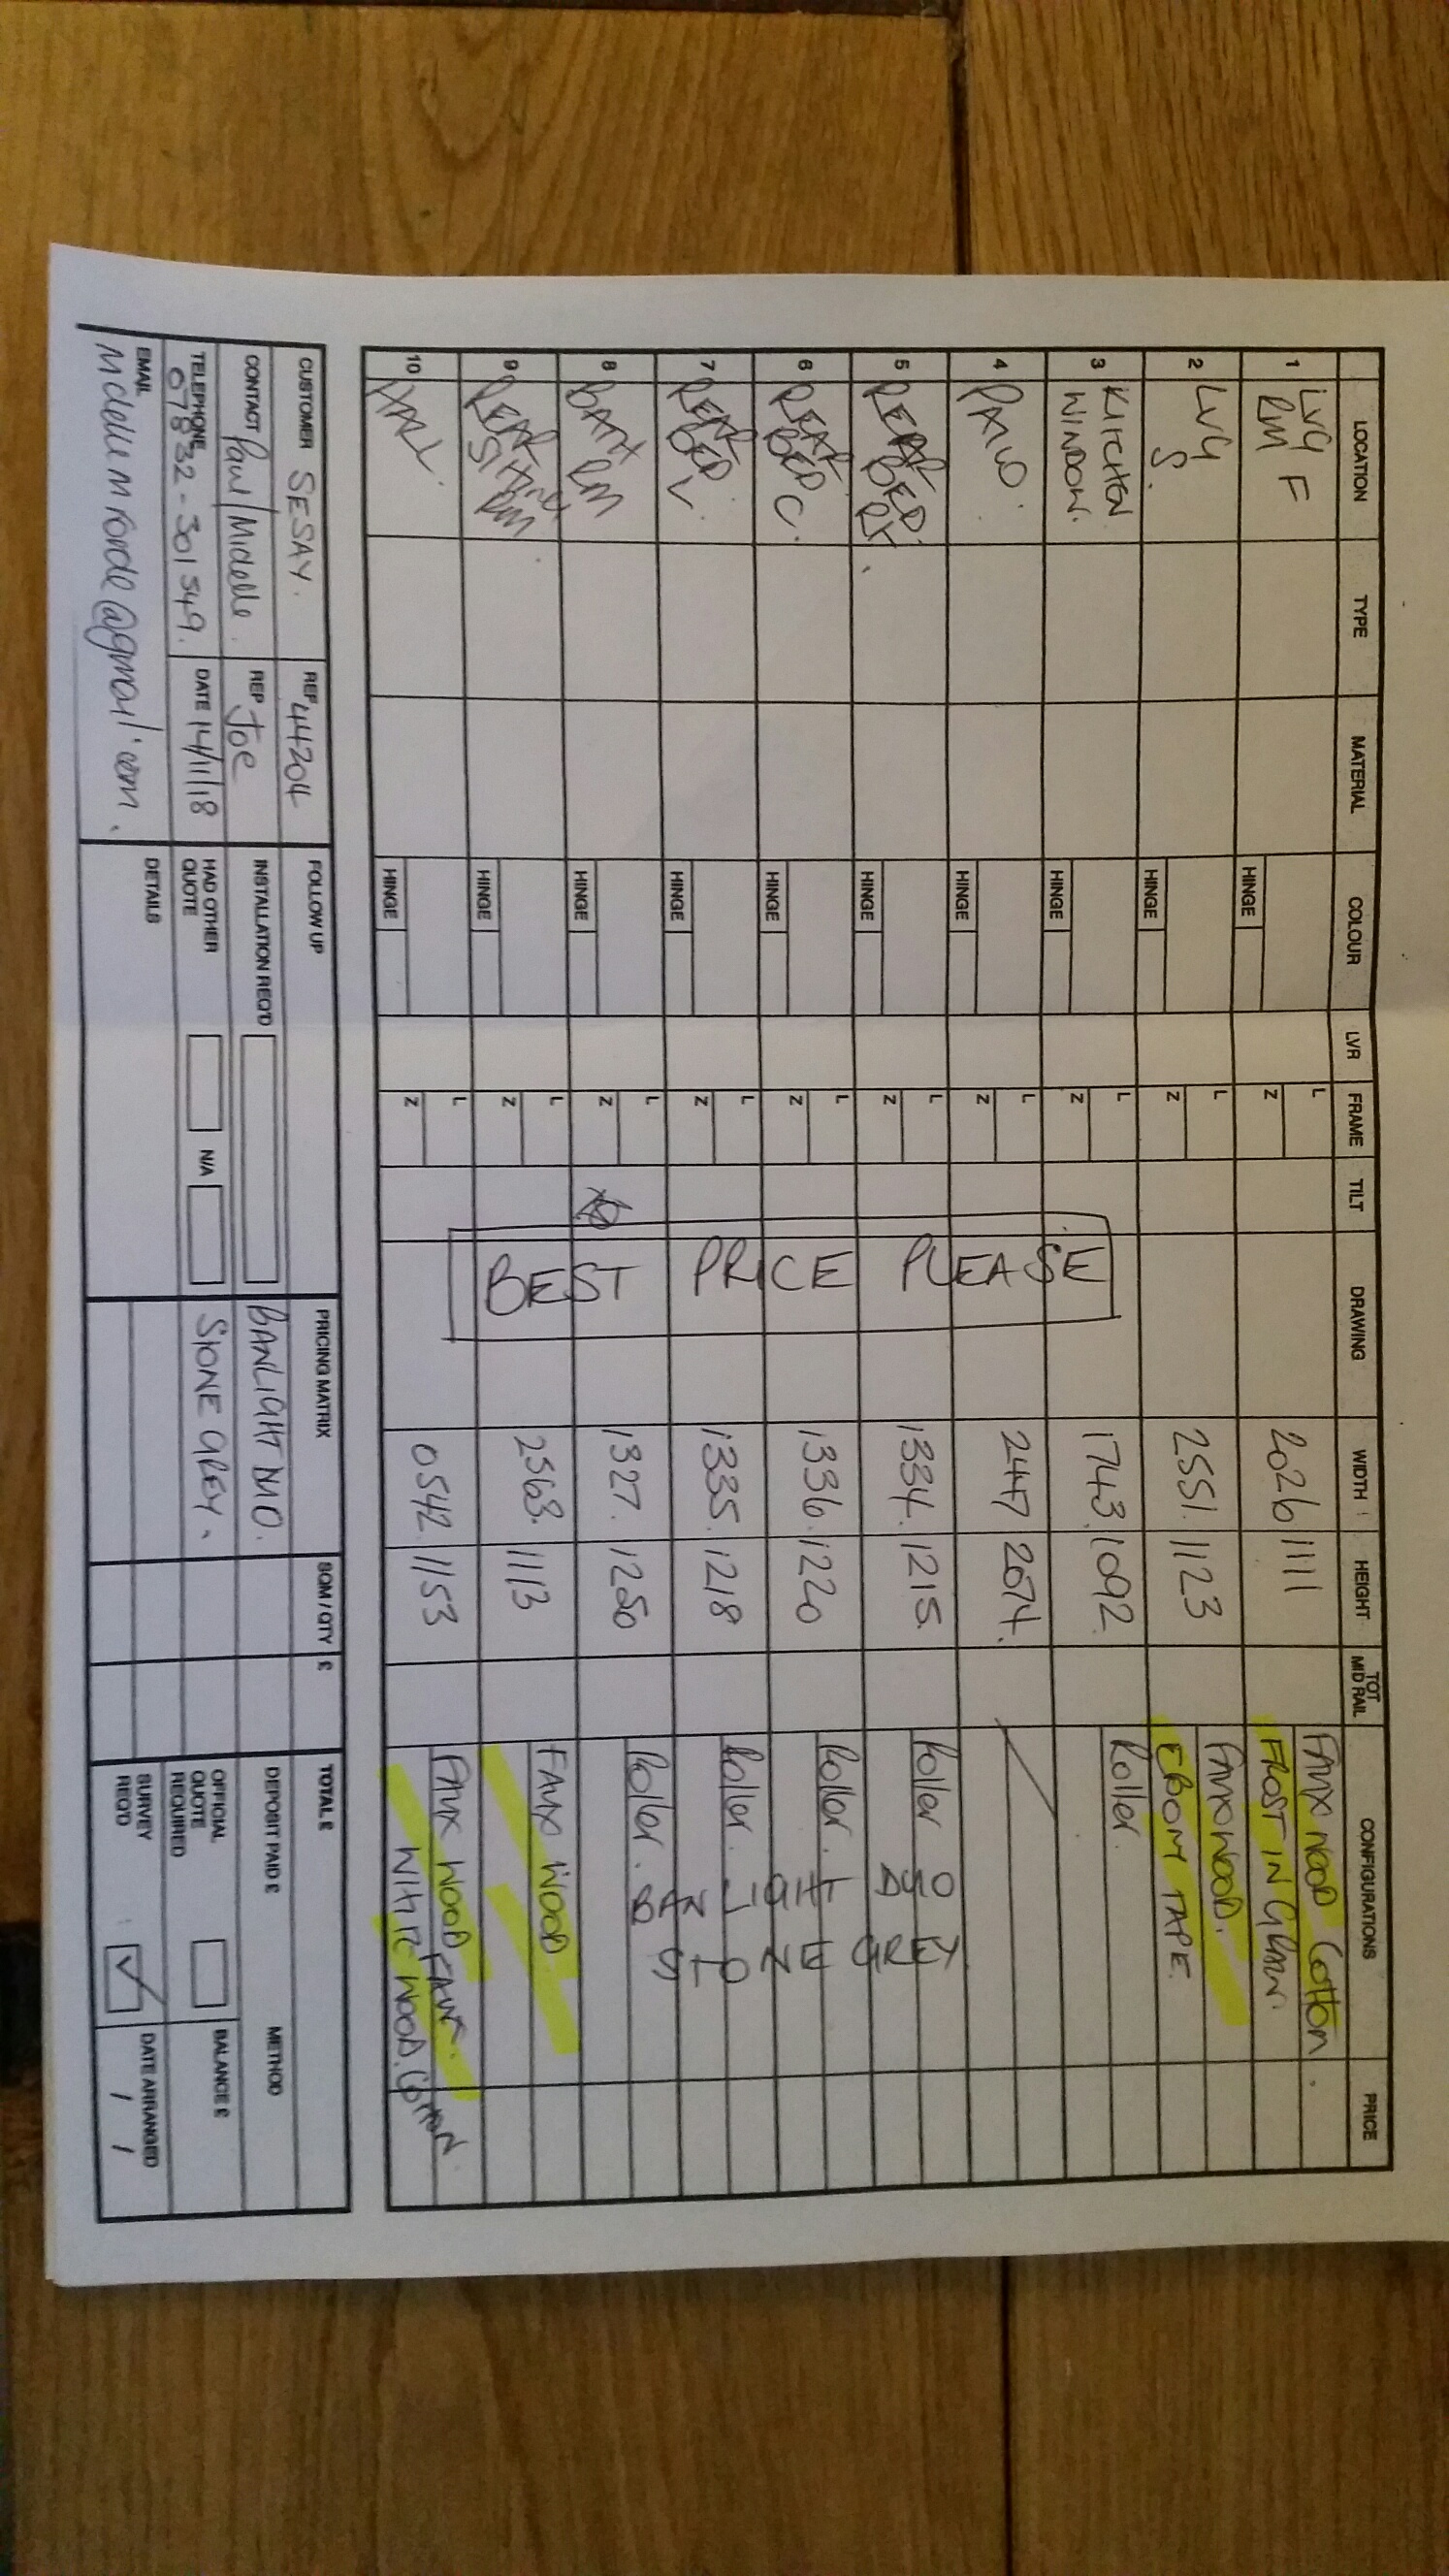 LOCATION TYPE MATERIAL COLOUR LVR FRAME TILT DRAWING WIDTH HEIGHT TOT MID RAIL CONFIGURATIONS PRICE
1 LVG F HINGE L 2026 1111 FAUX WOOD Cotton.
RM Z FROST IN GRAIN.
2 LVG HINGE L 2551. 1123 FAUX WOOD.
S. Z EBONY TAPE.
3 KITCHEN HINGE L 1743. 1092. Roller.
WINDOW. Z
4 HINGE L 2447 2074.
Z
BEST PRICE PLEASE
5 REAR BED. HINGE L 1334. 1215. Roller
RT Z
6 REAR BED HINGE L 1336. 1220 Roller.
C. Z
7 REAR BED HINGE L 1335. 1218 Roller.
Z
8 BATH RM HINGE L 1327. 1250 Roller.
Z
BANLIGHT DUO
STONE GREY
9 REAR HINGE L 2563. 1113 FAUX WOOD.
SITTING RM Z
10 HALL HINGE L 0542. 1153 FAUX WOOD FAUX.
Z WHITE WOOD. Cotton.
CUSTOMER SESAY. REF 44204 FOLLOW UP PRICING MATRIX SQM / QTY £ TOTAL £
CONTACT Paul/Midelle. REP Joe INSTALLATION REQ'D BANLIGHT DUO. DEPOSIT PAID £ METHOD
TELEPHONE 07832-301549. DATE 14/11/18 HAD OTHER QUOTE N/A STONE GREY. OFFICIAL QUOTE REQUIRED BALANCE £
EMAIL DETAILS SURVEY REQ'D ✓ DATE ARRANGED / /